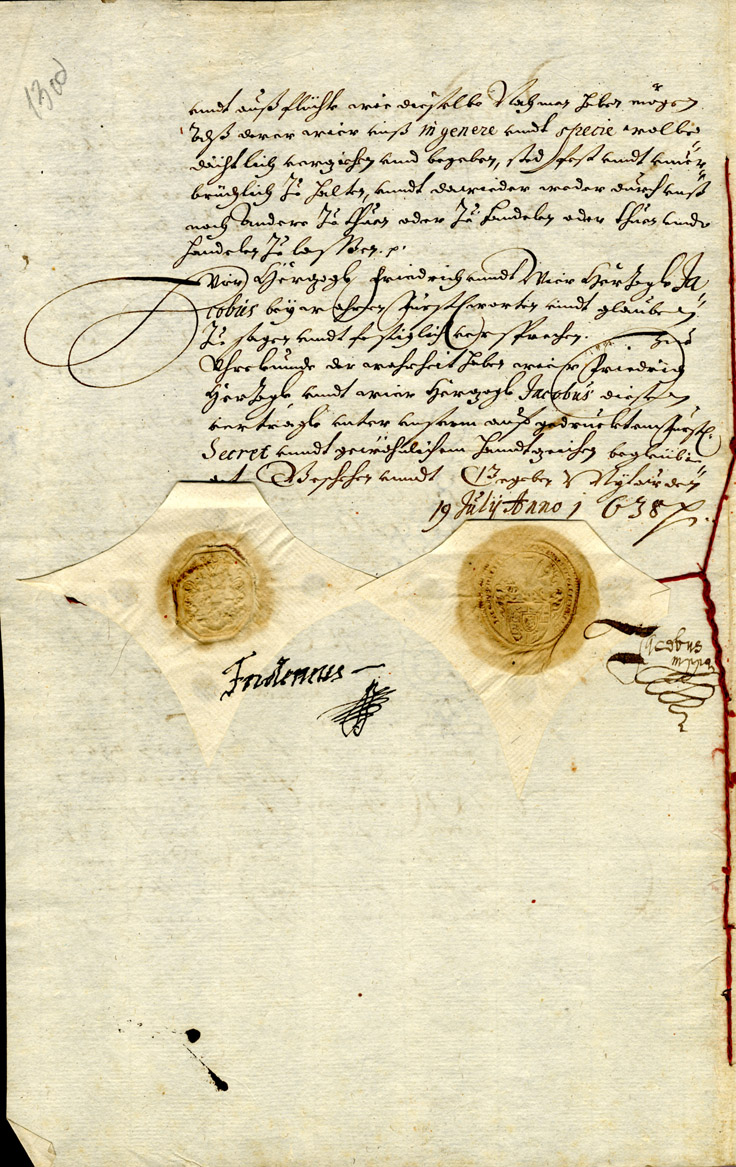 1300
undt außflüchte wie dieselbe Nahmen haben mögen
daß derer wier unß in genere undt specie wolbe
dächtlich verziehen und begeben, sted fest undt unver
brüchlich zu halten, undt dawieder weder durch unß
noch andere zu thuen oder zu handelen oder thuen undt
handelen zu lassen. p.
Wir Hertzogk Friedrich undt Wier Hertzogk Ja
cobus bey wahren Fürstl. worten undt glauben
zu sagen undt festiglich versprechen. Zue
Uhrkunde der warheit haben wier Friedrich
Hertzogk undt wier Hertzogk Jacobus diesen
vertragk unter unserm aufgedrucktem Fürstl.
Secret undt gewöhnlichem Handtzeichen beglaubi
get Geschehen undt Gegeben Mytaw den
19 Julij Anno 1638 p.
Fridericus
Jacobus
mppa